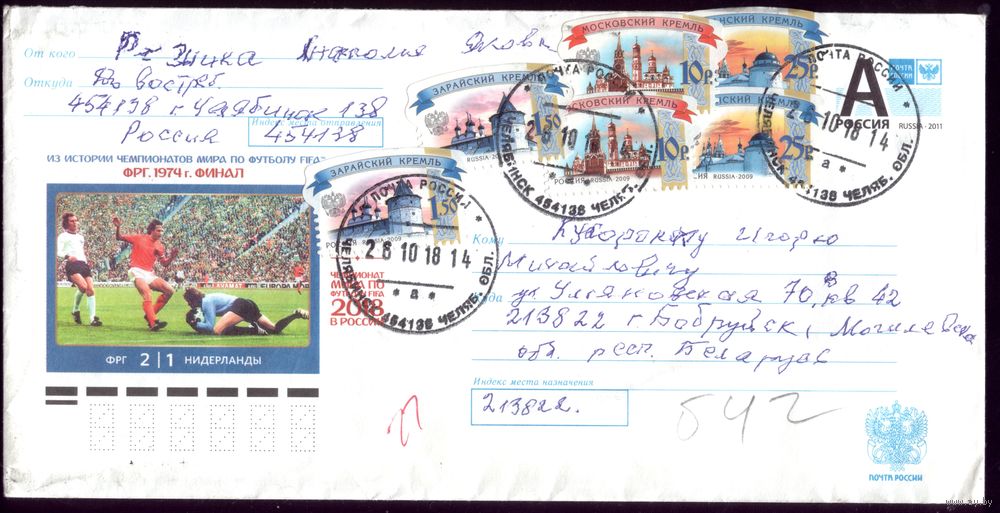 От кого
Зинка Анатолия Яковл
Откуда
До востреб.
454138 г. Челябинск 138
Россия
Индекс места отправления
454138
ИЗ ИСТОРИИ ЧЕМПИОНАТОВ МИРА ПО ФУТБОЛУ FIFA
ФРГ. 1974 г. ФИНАЛ
ФРГ 2|1 НИДЕРЛАНДЫ
ЧЕМПИОНАТ
МИРА ПО
ФУТБОЛУ FIFA
2018
В РОССИИ
ЗАРАЙСКИЙ КРЕМЛЬ
1,50
РОССИЯ RUSSIA·2009
ЗАРАЙСКИЙ КРЕМЛЬ
1,50
RUSSIA·2009
МОСКОВСКИЙ КРЕМЛЬ
10р
МОСКОВСКИЙ КРЕМЛЬ
10р
РОССИЯ·RUSSIA·2009
НСКИЙ КРЕМЛЬ
25р
25р
ИЯ·RUSSIA·2009
ПОЧТА РОССИИ
26 10 18 14
*а*
ЧЕЛЯБИНСК 454138 ЧЕЛЯБ. ОБЛ.
ПОЧТА РОССИИ
26 10
ЧЕЛЯБИНСК 454138 ЧЕЛЯБ.
ПОЧТА РОССИИ
26 10 18 14
а
454138 ЧЕЛЯБ. ОБЛ.
ПОЧТА
РОССИИ
А
РОССИЯ
RUSSIA·2011
Кому
Игорю
Михайловичу
Куда
ул. Ульяновская 70, кв 42
213822 г. Бобруйск, Могилевская
обл. респ. Беларусь
Индекс места назначения
213822.
ПОЧТА РОССИИ
www.ay.by